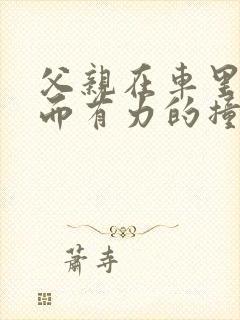 父親在車里
而有力的撞
蕭寺